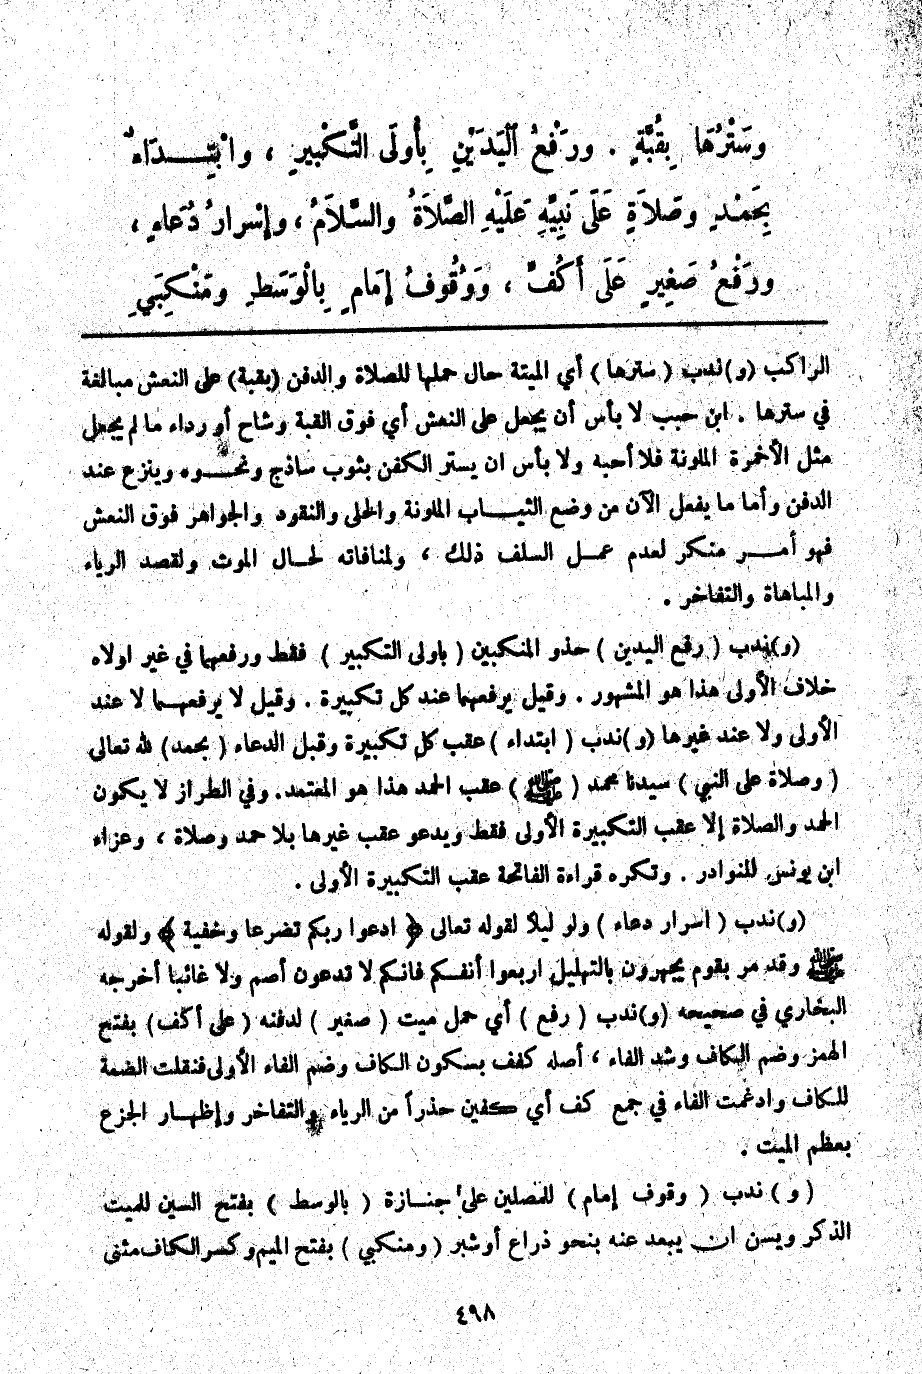 وسَتْرُهَا بِقُبَّةٍ . ورَفْعُ الْيَدَيْنِ بِأُولَى التَّكْبِيرِ ، وابْتِدَاءٌ
بِحَمْدٍ وصَلاَةٍ عَلَى نَبِيِّهِ عَلَيْهِ الصَّلاَةُ والسَّلاَمُ ، وإسْرارُ دُعَاءٍ ،
ورَفْعُ صَغِيرٍ عَلَى أَكُفٍّ ، وَوُقُوفُ إمَامٍ بِالْوَسَطِ ومَنْكِبَيِ
الراكب (و)ندب ( سترها ) أي الميتة حال حملها للصلاة والدفن (بقبة) على النعش مبالغة
في سترها . ابن حبب لا بأس أن يجعل على النعش أي فوق القبة وشاح أو رداء ما لم يجعل
مثل الأخمرة الملونة فلا أحبه ولا بأس ان يستر الكفن بثوب ساذج ونحوه وينزع عند
الدفن وأما ما يفعل الآن من وضع الثياب الملونة والحلى والنقود والجواهر فوق النعش
فهو أمر منكر لعدم عمل السلف ذلك ، ولمنافاته لحال الموت ولقصد الرياء
والمباهاة والتفاخر .
(و)ندب ( رفع اليدين ) حذو المنكبين ( باولى التكبير ) فقط ورفعهما في غير اولاه
خلاف الأولى هذا هو المشهور . وقيل يرفعهما عند كل تكبيرة . وقيل لا يرفعهما لا عند
الأولى ولا عند غيرها (و)ندب ( ابتداء ) عقب كل تكبيرة وقبل الدعاء ( بحمد) لله تعالى
( وصلاة على النبي ) سيدنا محمد ( ﷺ ) عقب الحمد هذا هو المعتمد. وفي الطراز لا يكون
الحمد والصلاة إلا عقب التكبيرة الأولى فقط ويدعو عقب غيرها بلا حمد وصلاة ، وعزاء
ابن يونس للنوادر . وتكره قراءة الفاتحة عقب التكبيرة الأولى .
(و)ندب ( اسرار دعاء ) ولو ليلاً لقوله تعالى ﴿ ادعوا ربكم تضرعا وخفية ﴾ ولقوله
ﷺ وقد مر بقوم يجهرون بالتهليل اربعوا أنفسكم فانكم لا تدعون أصم ولا غائبا أخرجه
البخاري في صحيحه (و)ندب ( رفع ) أي حمل ميت ( صغير ) لدفنه ( على أكف) بفتح
الهمز وضم الكاف وشد الفاء ، أصله كفف بسكون الكاف وضم الفاء الأولى فنقلت الضمة
للكاف وادغمت الفاء في جمع كف أي كفين حذراً من الرياء والتفاخر وإظهار الجزع
بعظم الميت .
( و ) ندب ( وقوف إمام ) للمصلين على جنازة ( بالوسط ) بفتح السين للميت
الذكر ويسن ان يبعد عنه بنحو ذراع أو شبر ( ومنكبي ) بفتح الميم وكسر الكاف مثنى
٤٩٨